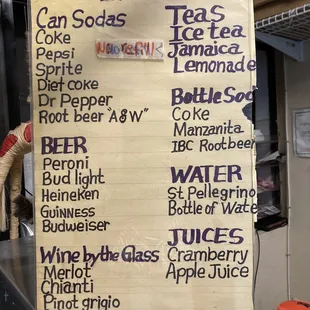 Can Sodas
Coke
Pepsi
Sprite
Diet coke
Dr Pepper
Root beer "A&W"
BEER
Peroni
Bud light
Heineken
GUINNESS
Budweiser
Wine by the Glass
Merlot
Chianti
Pinot grigio
TEAS
Ice tea
Jamaica
Lemonade
Bottle Sod
Coke
Manzanita
IBC Rootbeer
WATER
St Pellegrino
Bottle of Wate
JUICES
Cramberry
Apple Juice